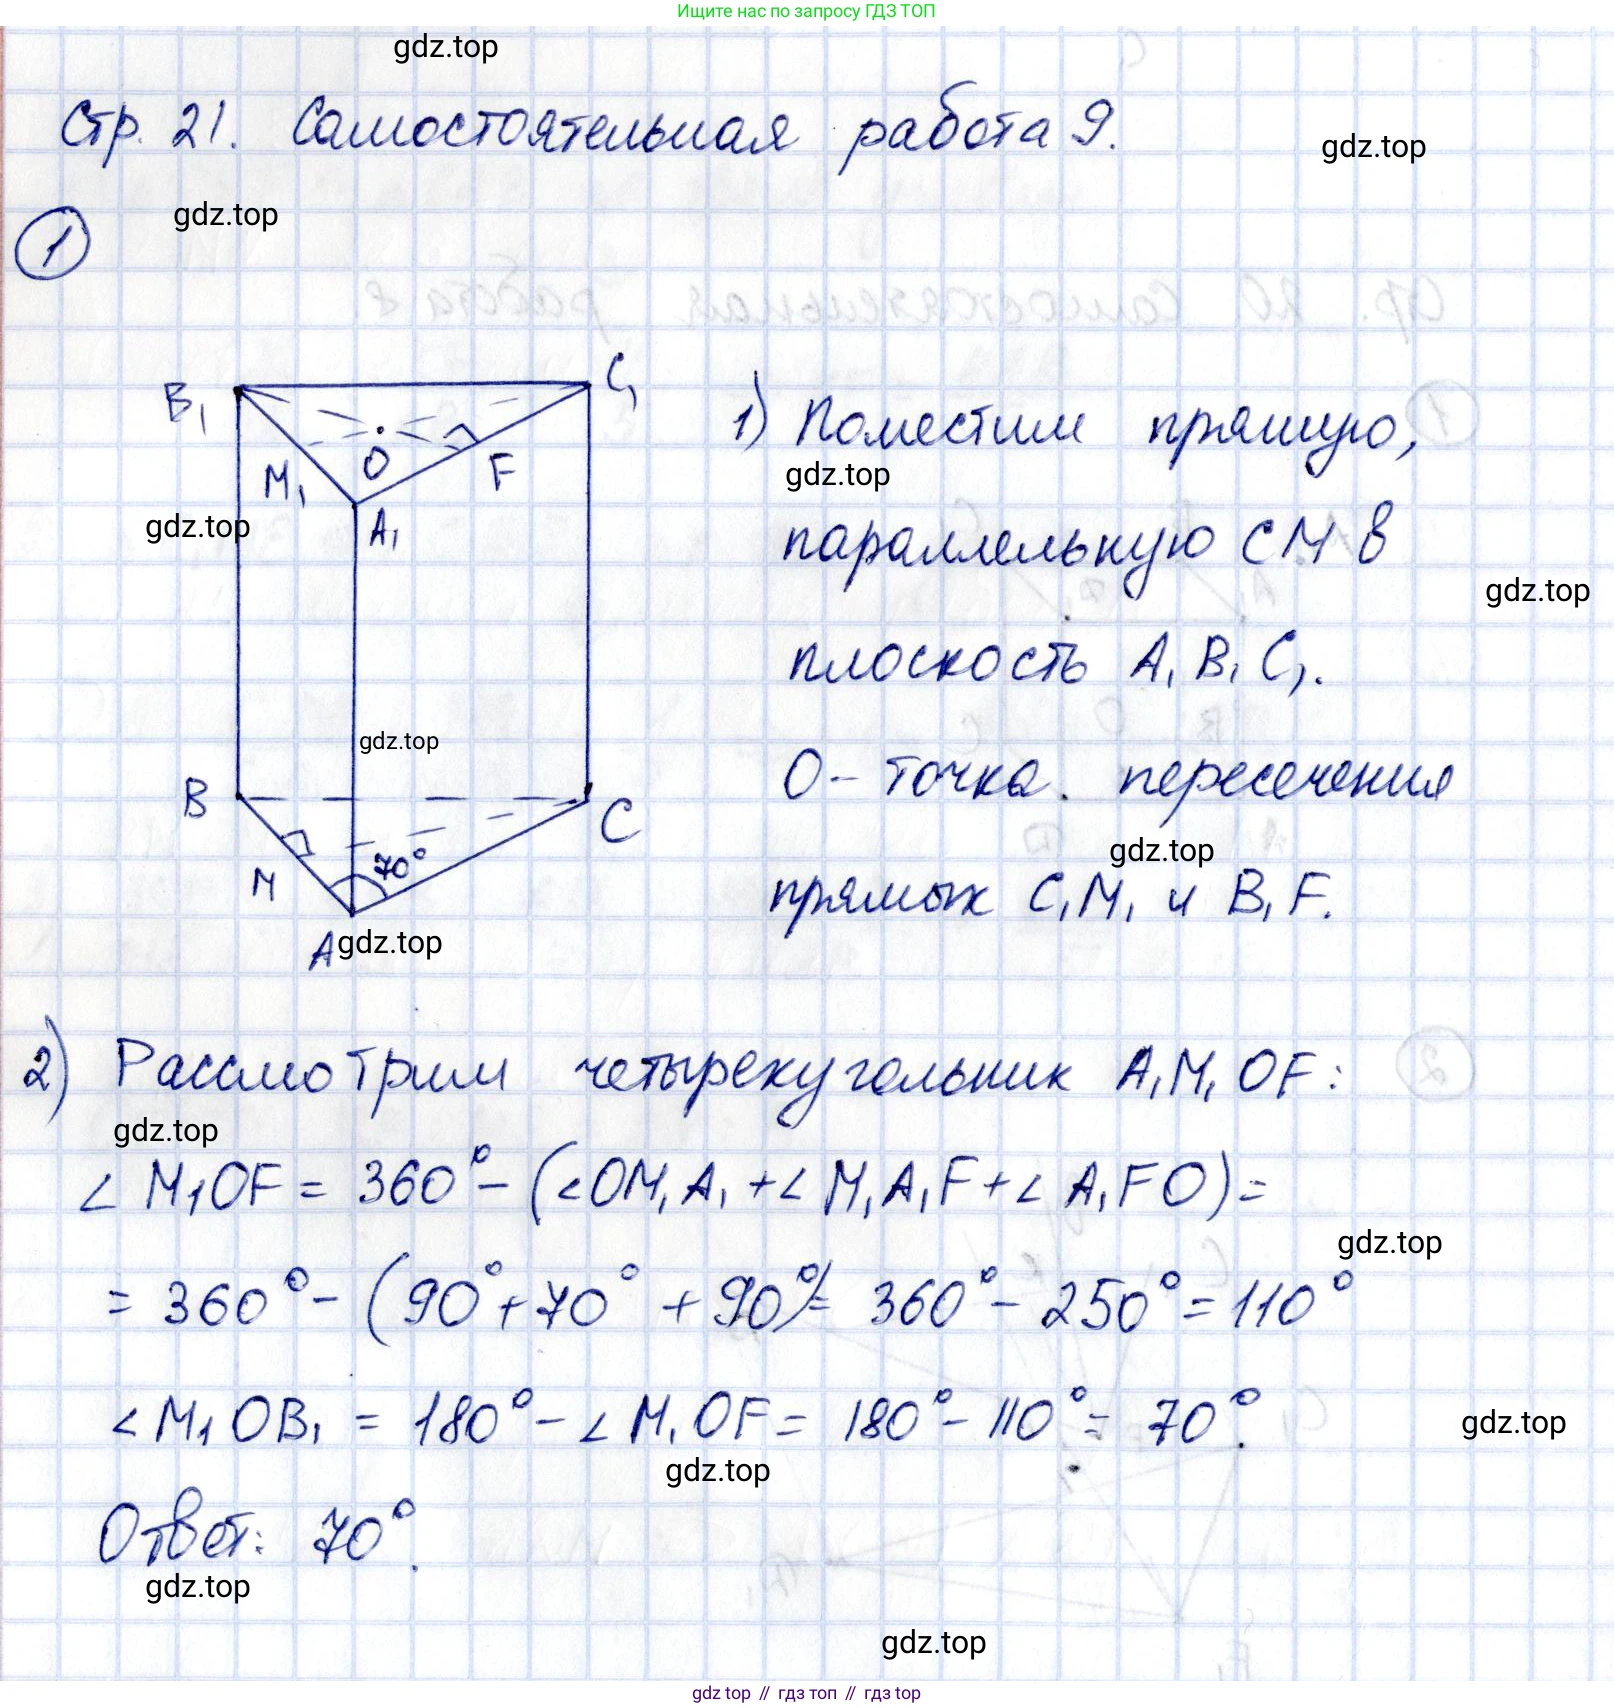 Ищите нас по запросу ГДЗ ТОП
gdz.top
Стр. 21. Самостоятельная работа 9.
gdz.top
gdz.top
1
B₁
C₁
M₁
O
F
A₁
gdz.top
1) Поместим прямую,
gdz.top
параллельную CM в
gdz.top
плоскость A₁B₁C₁.
gdz.top
O – точка пересечения
gdz.top
прямых C₁M₁ и B₁F.
B
C
M
70°
A
gdz.top
2) Рассмотрим четырехугольник A₁M₁OF:
gdz.top
∠M₁OF = 360° – (∠OM₁A₁ + ∠M₁A₁F + ∠A₁FO) =
gdz.top
= 360° – (90° + 70° + 90°) = 360° – 250° = 110°
∠M₁OB₁ = 180° – ∠M₁OF = 180° – 110° = 70°.
gdz.top
gdz.top
Ответ: 70°.
gdz.top
gdz.top
gdz top // гдз топ // гдз top